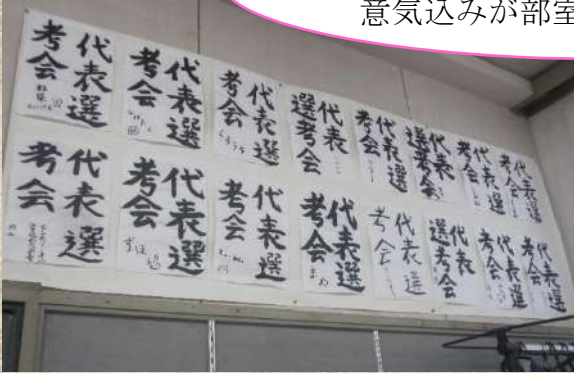 意気込みが部室
代表選
考会
代表選
考会
代表選
考会
代表
選考会
代表選
考会
代表
選考会
代表選
考会
代表選
考会
代表選
考会
代表選
考会
代表選
考会
代表選
考会
まめ
代表選
考会
代表
選考会
代表選
考会
代表選
考会